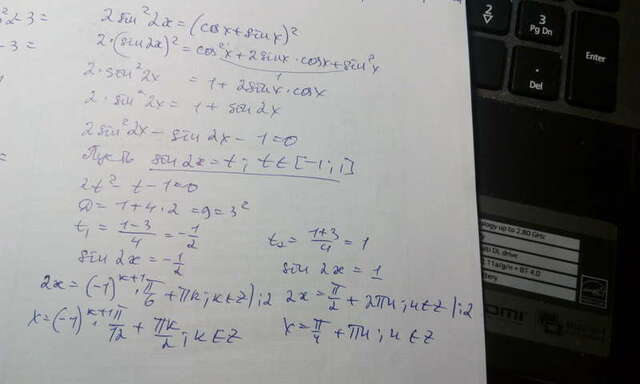 2 <3=
-3=
2sin²2x=(cosx+sinx)²
2·(sin2x)²=cos²x+2sinx·cosx+sin²x
2·sin²2x = 1+2sinx·cosx
2·sin²2x = 1+sin2x
2sin²2x-sin2x-1=0
Пусть sin2x=t; t∈[-1;1]
2t²-t-1=0
D=1+4·2=9=3²
t₁=(1-3)/4=-1/2 t₂=(1+3)/4=1
sin2x=-1/2 sin2x=1
2x=(-1)^(k+1)·π/6+πk; k∈Z |:2 2x=π/2+2πn; n∈Z |:2
x=(-1)^(k+1)·π/12+πk/2; k∈Z x=π/4+πn; n∈Z
2
3
Pg Dn
Enter
Del
ology up to 2.80 GHz
DL drive
11a/g/n + BT 4.0
ttery
OMI